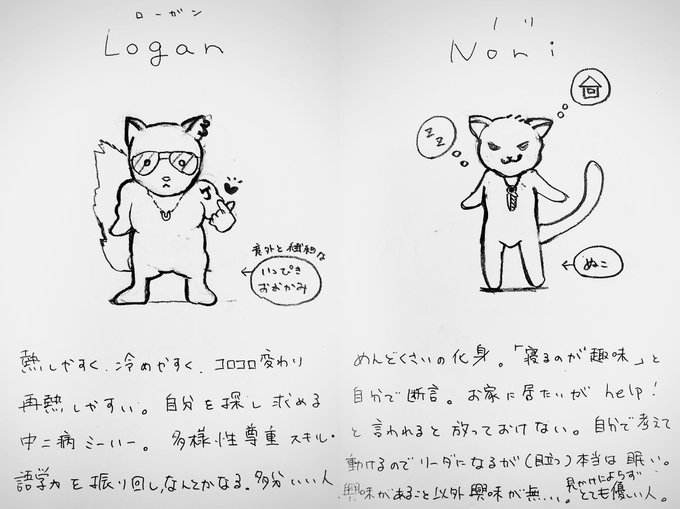 ローガン
Logan
意外と繊細な
いっぴき
おおかみ
熱しやすく、冷めやすく、コロコロ変わり
再熱しやすい。自分を探し求める
中二病ミーハー。多様性尊重スキル・
語学力を振り回し、なんとかなる。多分いい人
ノリ
Nori
zz
ぬこ
めんどくさいの化身。「寝るのが趣味」と
自分で断言。お家に居たいが help!
と言われると放っておけない。自分で考えて
動けるのでリーダになるが(目立つ)本当は眠い。
興味があること以外興味が無い。見かけによらずとても優しい人。